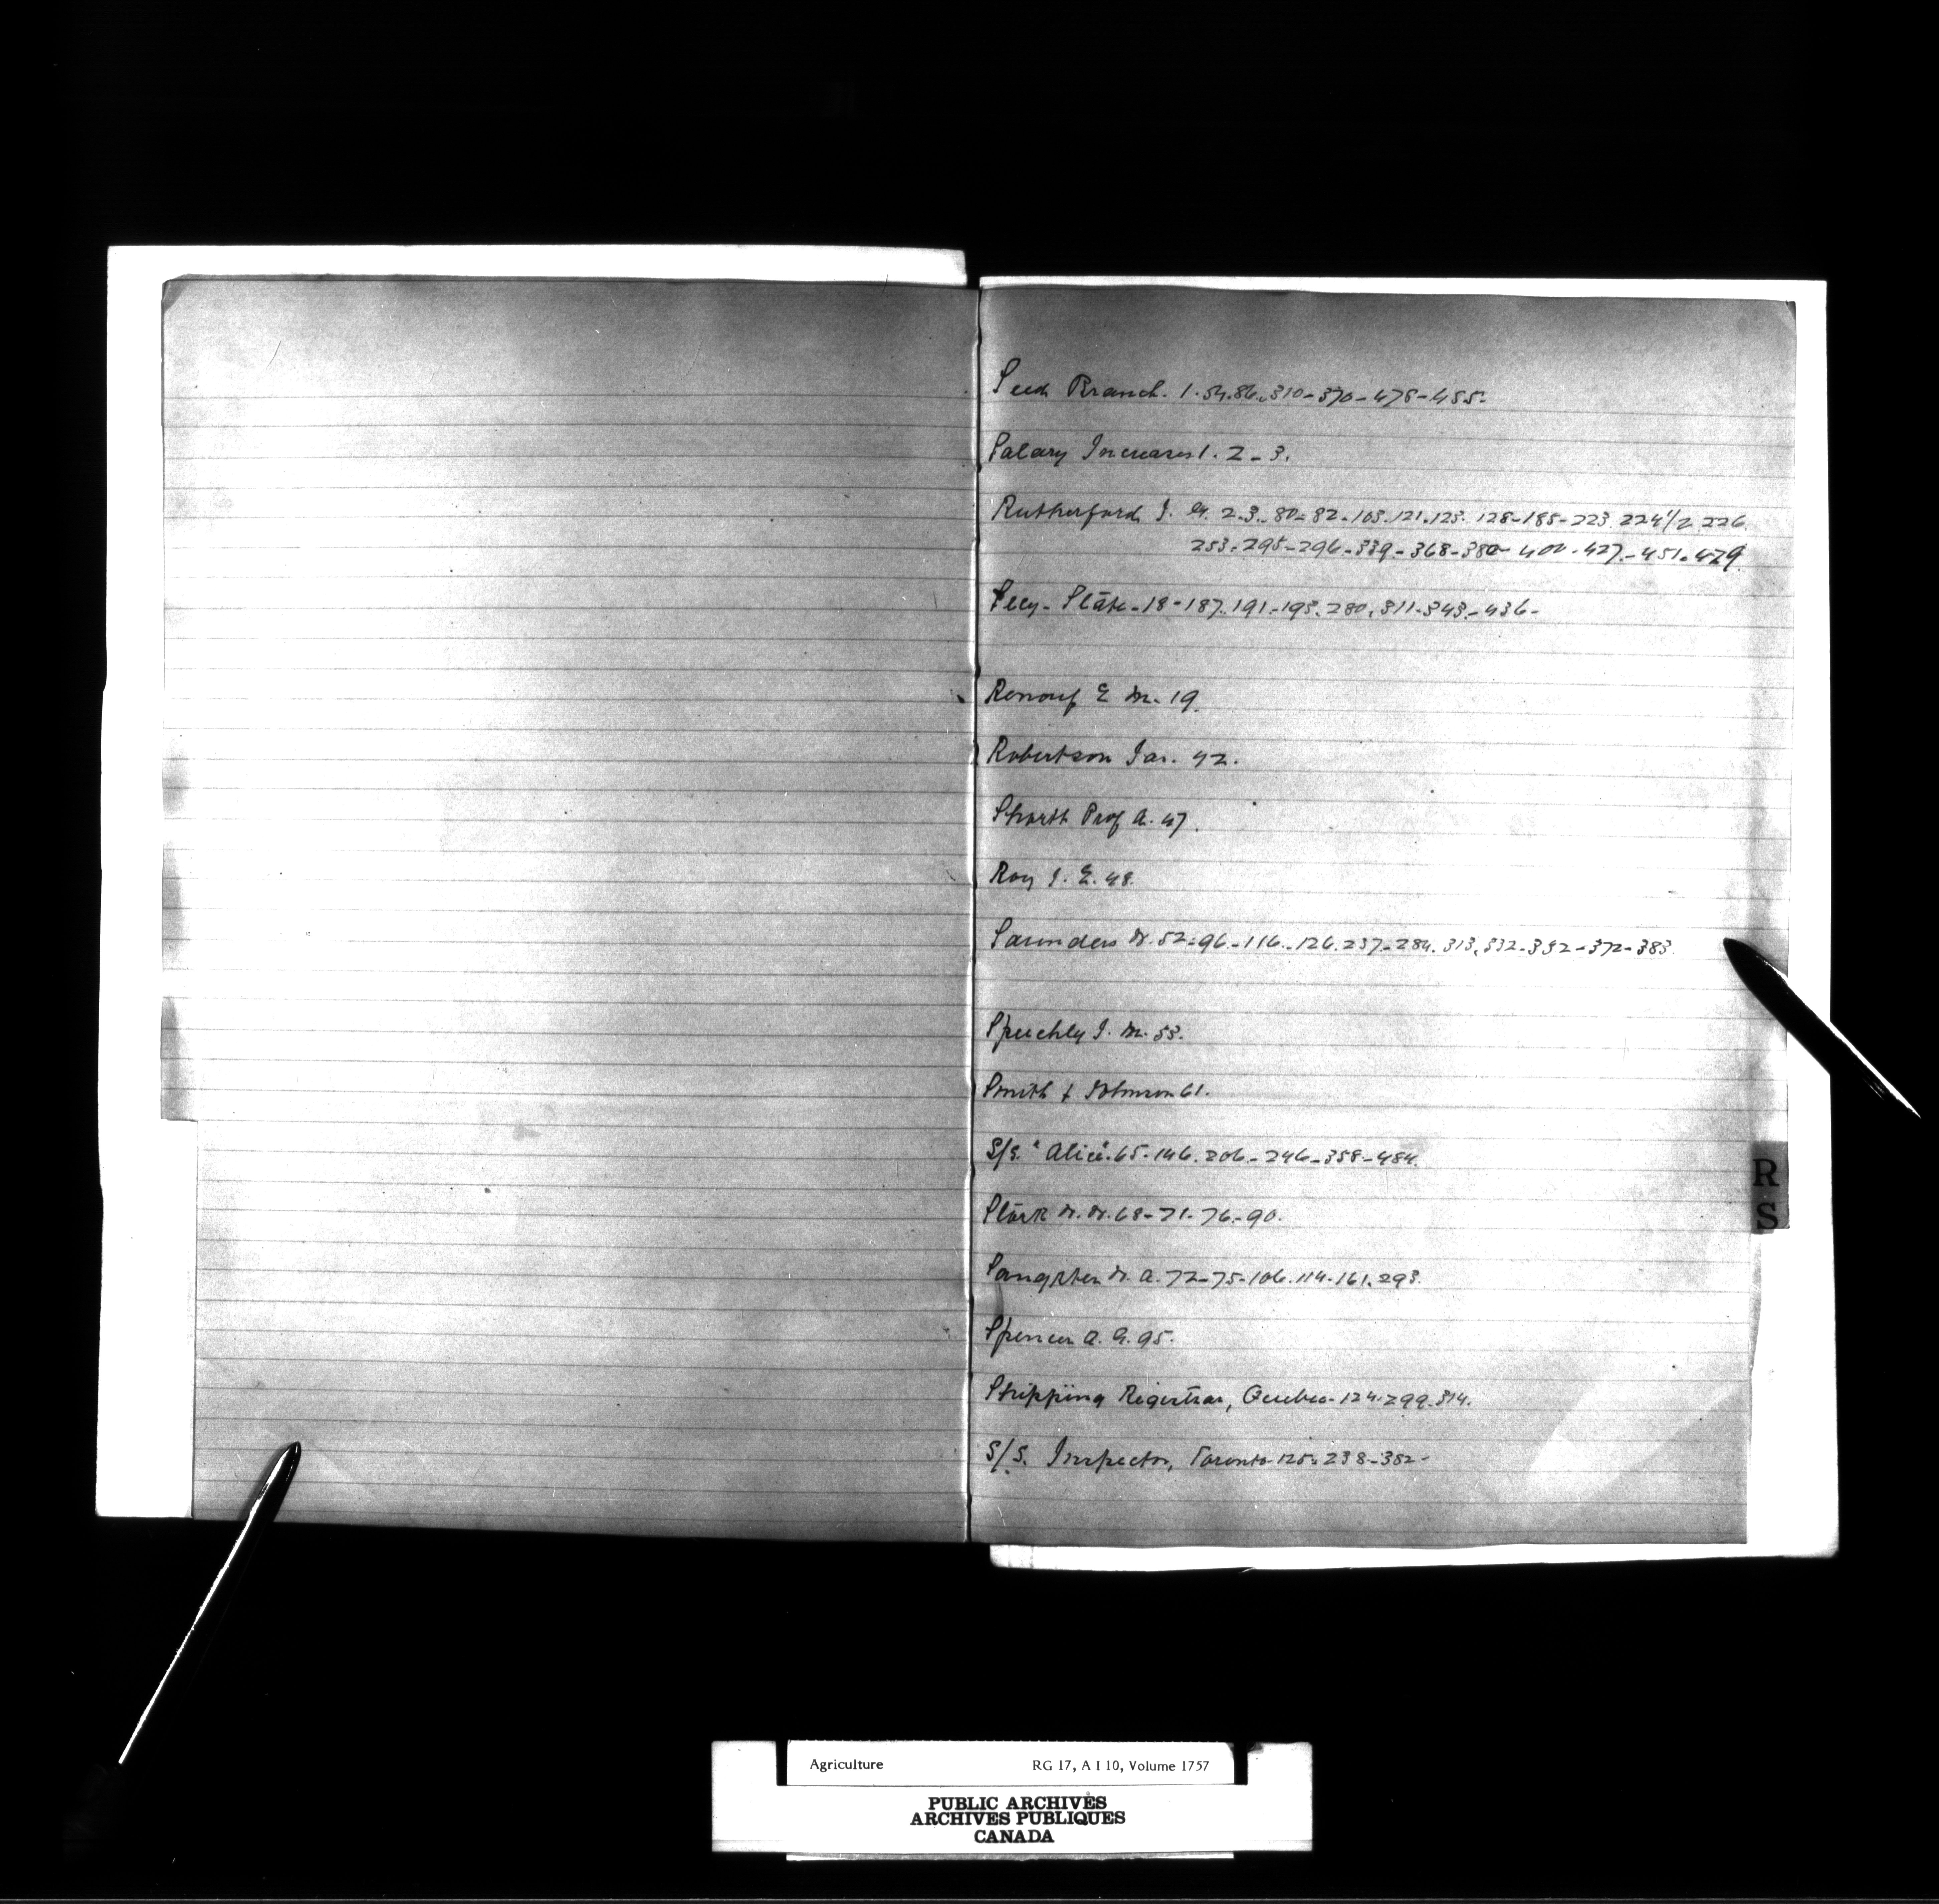 Seed Branch. 1.54.86.310-370-478-455.
Salary Increases 1. 2-3.
Rutherford J. G. 2.3.-80-82-105.121.123. 128-185-223. 224 1/2 226.
253.295-296-339.-368-380-400.427.-451.479.
Secy- State-18-187.191-193.280.311.343.-436-
Renouf E M. 19.
Robertson Jas. 42.
Shortt Prof A. 47.
Roy J. E. 48.
Saunders W. 52-96.-116.-126.237-284. 313.332-352-372-383.
Speechly J. M. 53.
Smith & Johnson 61.
S/S. "Alice".65-146.206.-246-358-484.
Stark W. W. 68-71-76-90.
Sangster W. A. 72-75-106.114-161.293.
Spencer A. G. 95.
Shipping Registrar, Quebec-124.299.314.
S/S. Inspector, Toronto-125.238-382-
R
S
Agriculture RG 17, A I 10, Volume 1757
PUBLIC ARCHIVES
ARCHIVES PUBLIQUES
CANADA